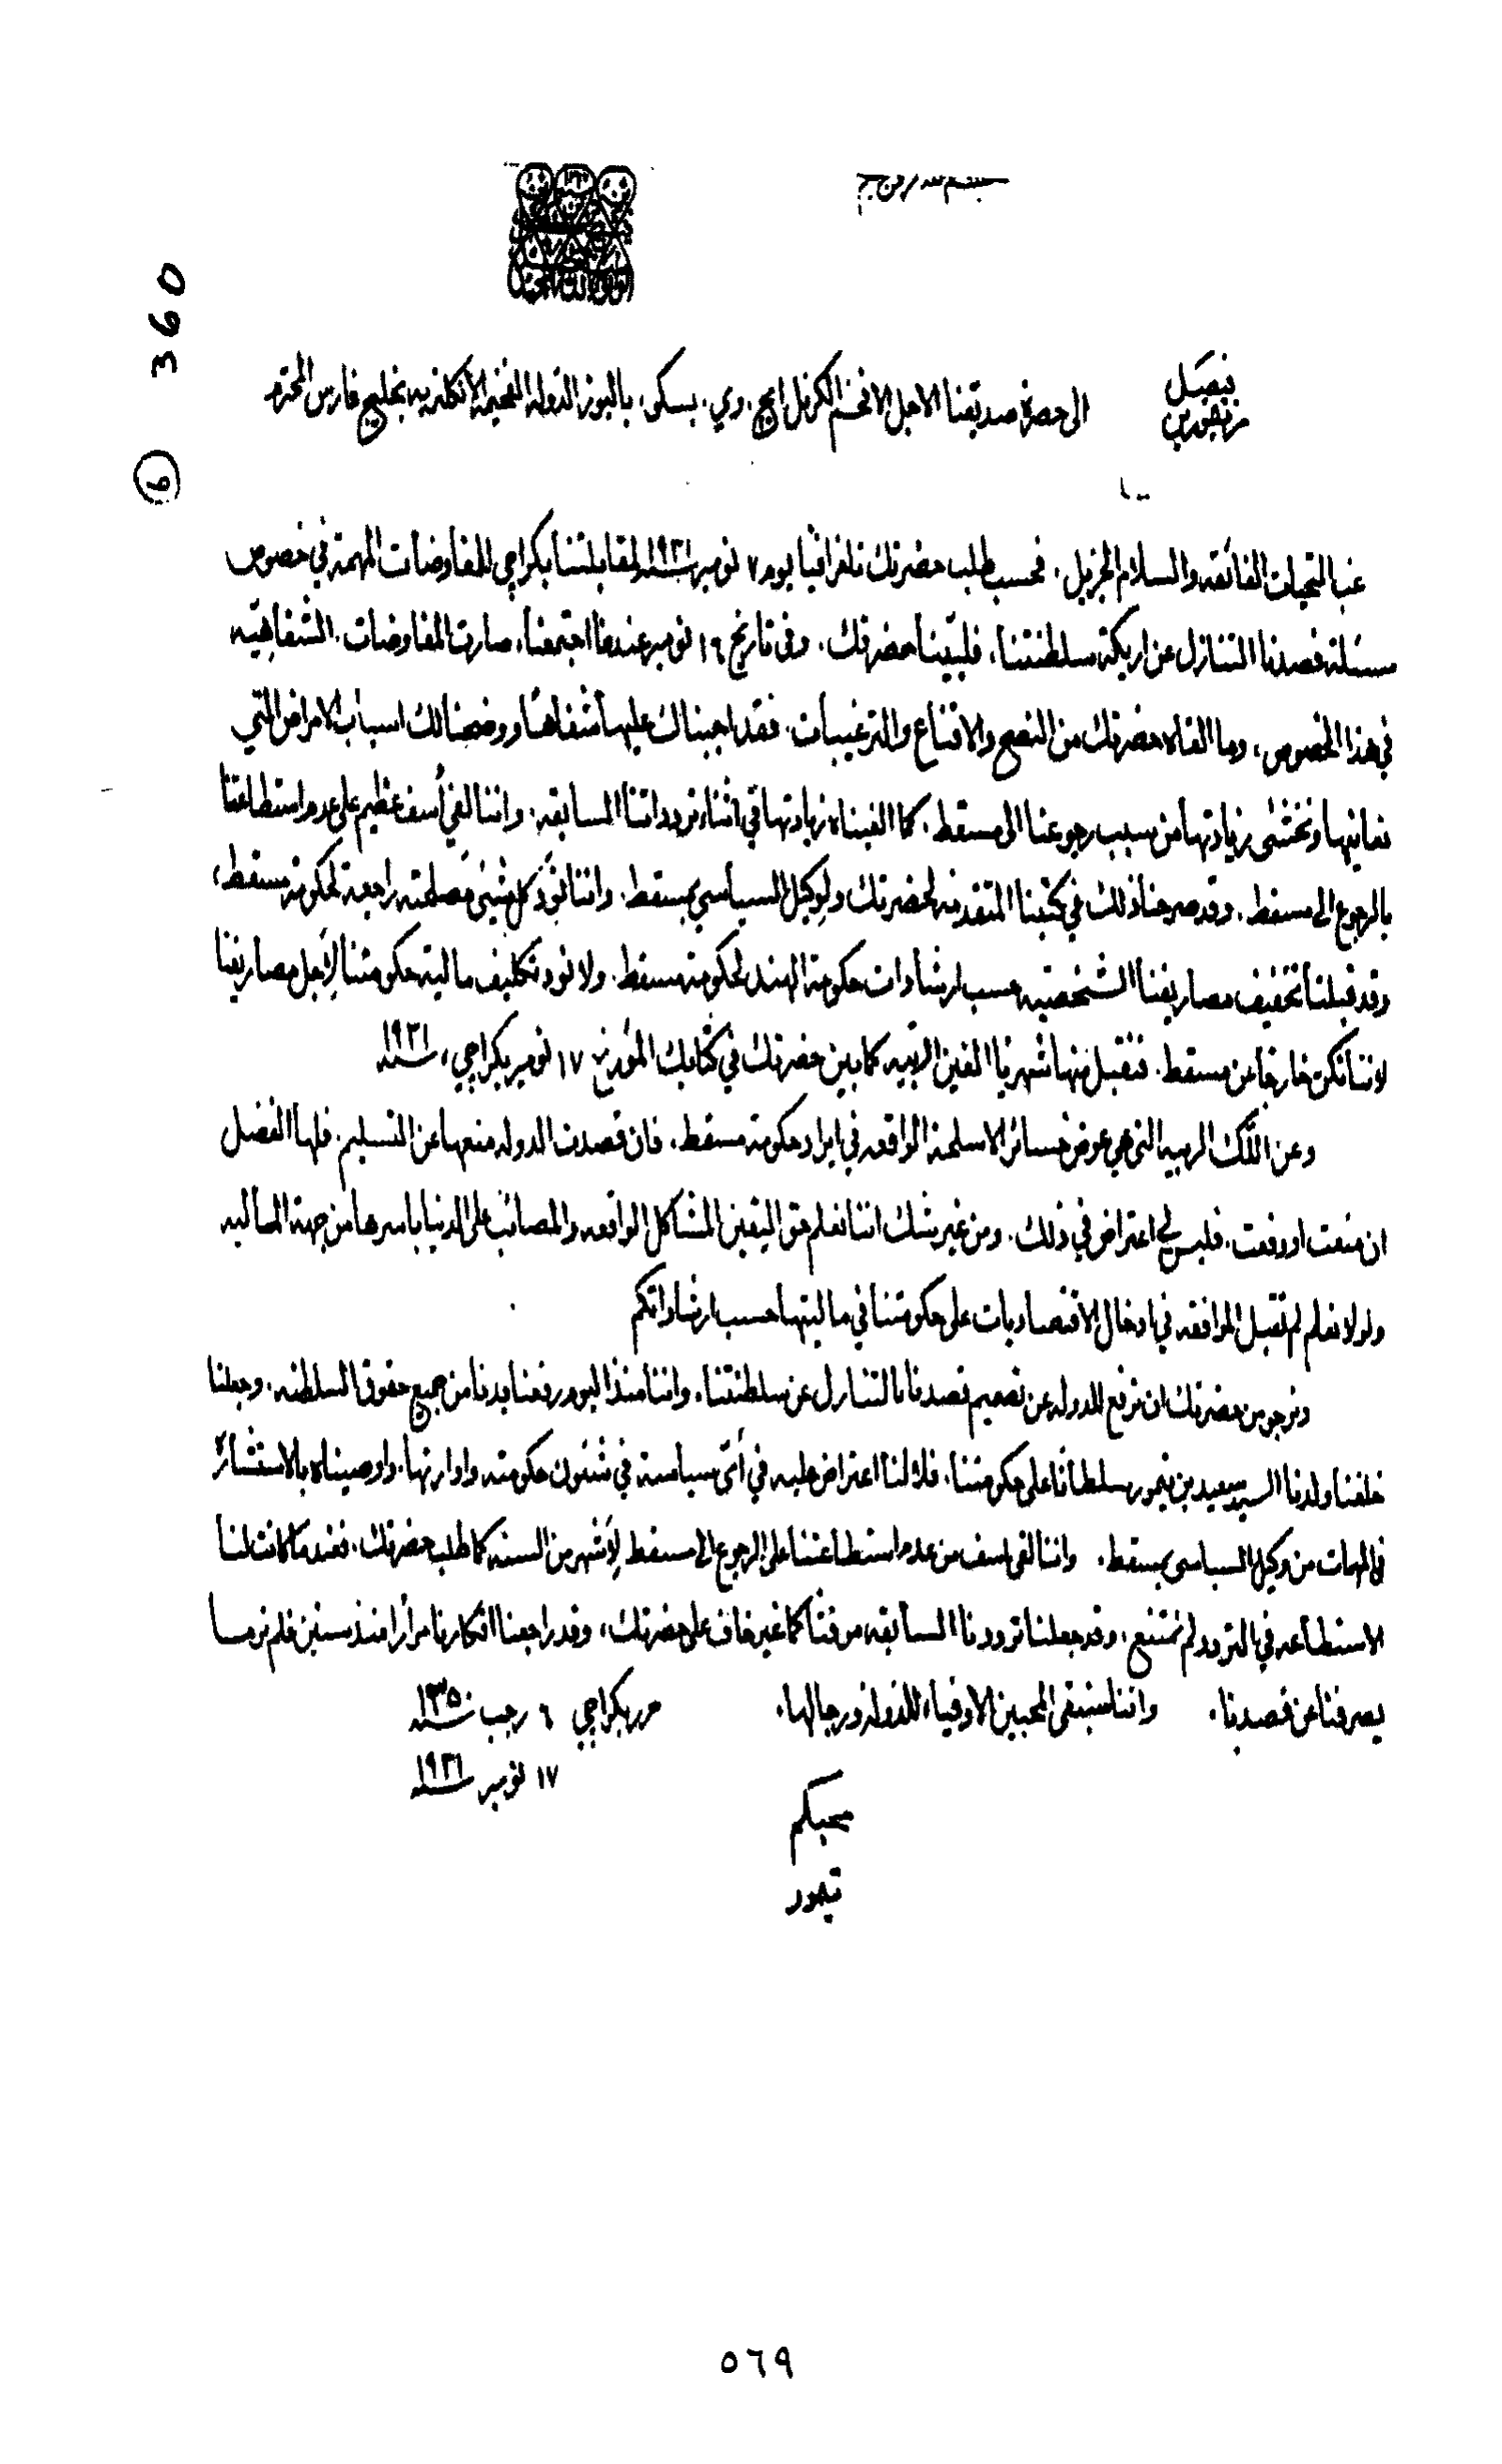 360
٦
من تيمور بن
فيصل
الى حضرة صديقنا الاجل الافخم الكرنل ايچ. وي. بسكو، باليوز الدولة الفخيمة الانكليزيه بخليج فارس المحترم
غب التحيات الفائقه والسلام الجزيل، فحسب طلب حضرتك تلغرافيا يوم ٧ نومبر سنه ١٩٣١ لمقابلتنا بكراچي للمفاوضات المهمة في خصوص
مسئلة قصدنا التنازل عن اريكة سلطنتنا، فلبّينا حضرتك، وفي تاريخ ١٦ نومبر عندما اجتمعنا، صارت المفاوضات الشفاهيّه
في هذا الخصوص، وما القاه حضرتك من النصح والاقناع والترغيبات، فقد اجبناك عليها شفاهًا ووضحنا لك اسباب الامراض التي
نعانيها ونخشى زيادتها من سبب رجوعنا الى مسقط، كما الفيناه زيادتها في اثناء تردداتنا السابقه، واننا لفي أسف عظيم على عدم استطاعتنا
بالرجوع الى مسقط، وقد صرحنا ذلك في كتبنا المتقدمه لحضرتك ولوكيل السياسي بمسقط، واننا نَودّ كل شيئ مصلحته راجعة لحكومة مسقط،
وقد قبلنا تخفيف مصاريفنا الشخصيّه حسب ارشادات حكومة الهند لحكومة مسقط، ولا نود تكليف مالية حكومتنا لأجل مصاريفنا
لاننا نكن خارجًا عن مسقط، فنقبل منها شهريا الفين الربيه كما بين حضرتك في كتابك المؤرخ ١٧ نومبر بكراچي، سنه ١٩٣١
وعن اللّك الربيه التي هي عوض خسائر الاسلحة الواقعه في ايراد حكومة مسقط، فان قصدت الدوله منعها عن التسليم، فلها الفضل
ان منعت او دفعت، فليس لي اعتراض في ذلك، ومن غير شك اننا نعلم حق اليقين المشاكل الواقعه والمصائب على الدنيا باسرها من جهة الماليه
ولولا نعلم لم نقبل الموافقه في ادخال الاقتصاديات على حكومتنا في ماليتها حسب ارشاداتكم
ونرجو من حضرتك ان ترفع للدوله عن تصميم قصدنا بالتنازل عن سلطنتنا، واننا منذ اليوم رفعنا يدنا من جميع حقوق السلطنه، وجعلنا
خلفنا ولدنا السيد سعيد بن تيمور سلطانًا على حكومتنا، فلا لنا اعتراض عليه في أيّ سياسة في شئون حكومته واداراتها، واوصيناه بالاستشارة
في المهمات من وكيل السياسي بمسقط، واننا لفي اسف من عدم استطاعتنا على الرجوع الى مسقط لأشهر من السنه كما طلب حضرتك، فعندما كانت لنا
الاستطاعه في التردد لم نمتنع، وقد جعلنا ترددنا السابقه موقتًا كما غير خاف على حضرتك، وقد راجعنا افكارنا مرارا منذ سنين فلم نر ما
يصرفنا عن قصدنا، واننا سنبقى المحبين الاوفياء للدوله ورجالها، حرر بكراچي ٦ رجب سنه ١٣٥٠
١٧ نومبر سنه ١٩٣١
محبكم
تيمور
٥٦٩